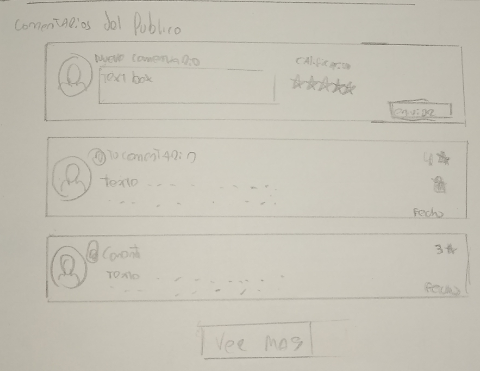 Comentarios del Publico
Nuevo comentario
Text box
Calificacion
enviar
Tu comentario
4
Texto
Fecha
Coment
3
Texto
Fecha
Ver mas